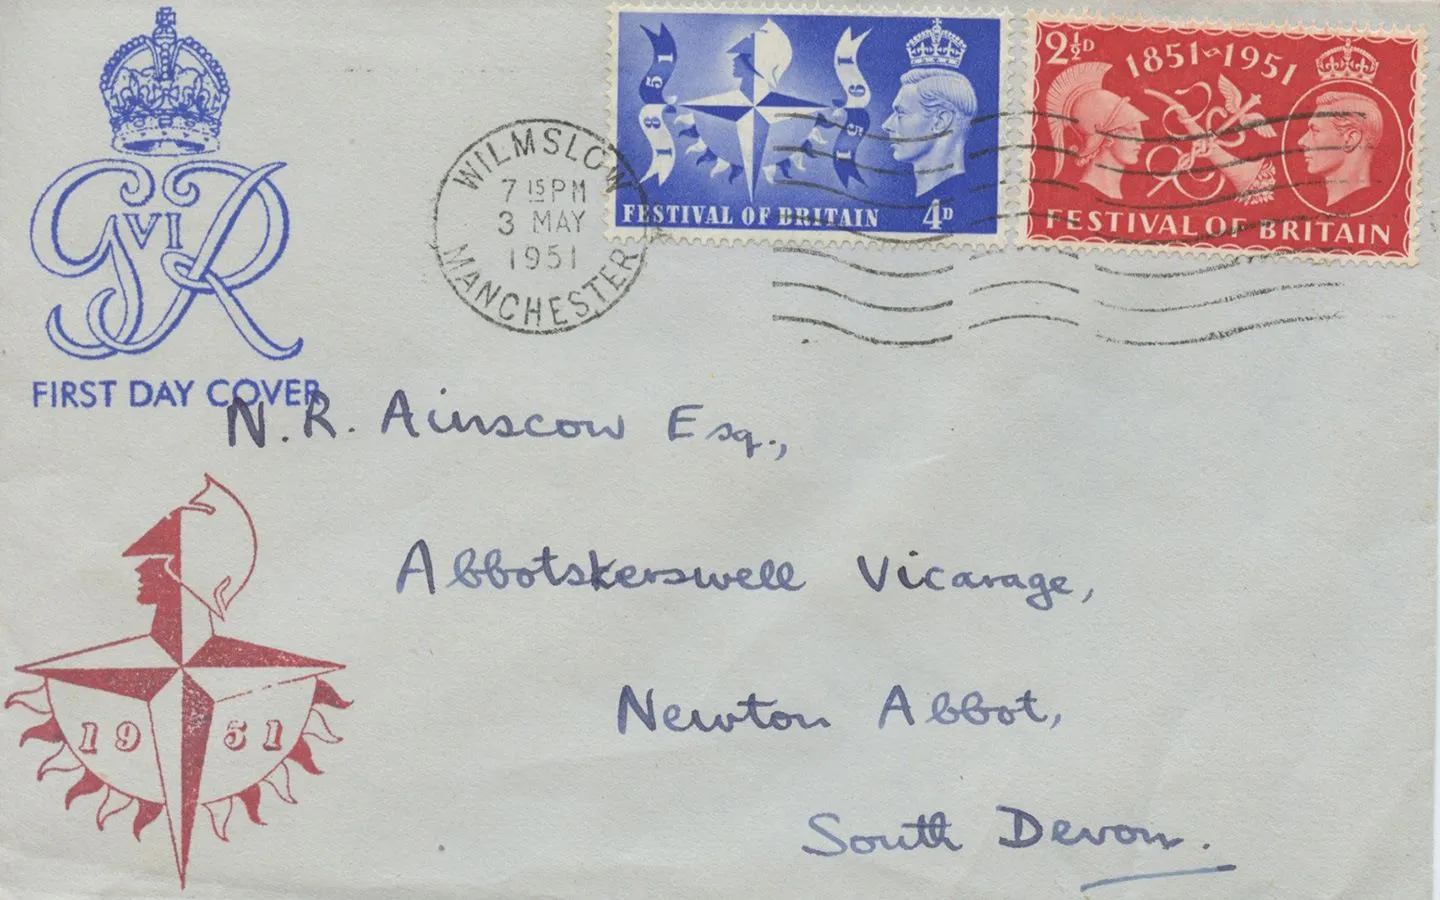 GVIR
FIRST DAY COVER
WILMSLOW
7 15 PM
3 MAY
1951
MANCHESTER
1851
1951
FESTIVAL OF BRITAIN 4D
2½D
1851-1951
FESTIVAL OF BRITAIN
N. R. Ainscow Esq.,
Abbotskerswell Vicarage,
Newton Abbot,
South Devon.
1951